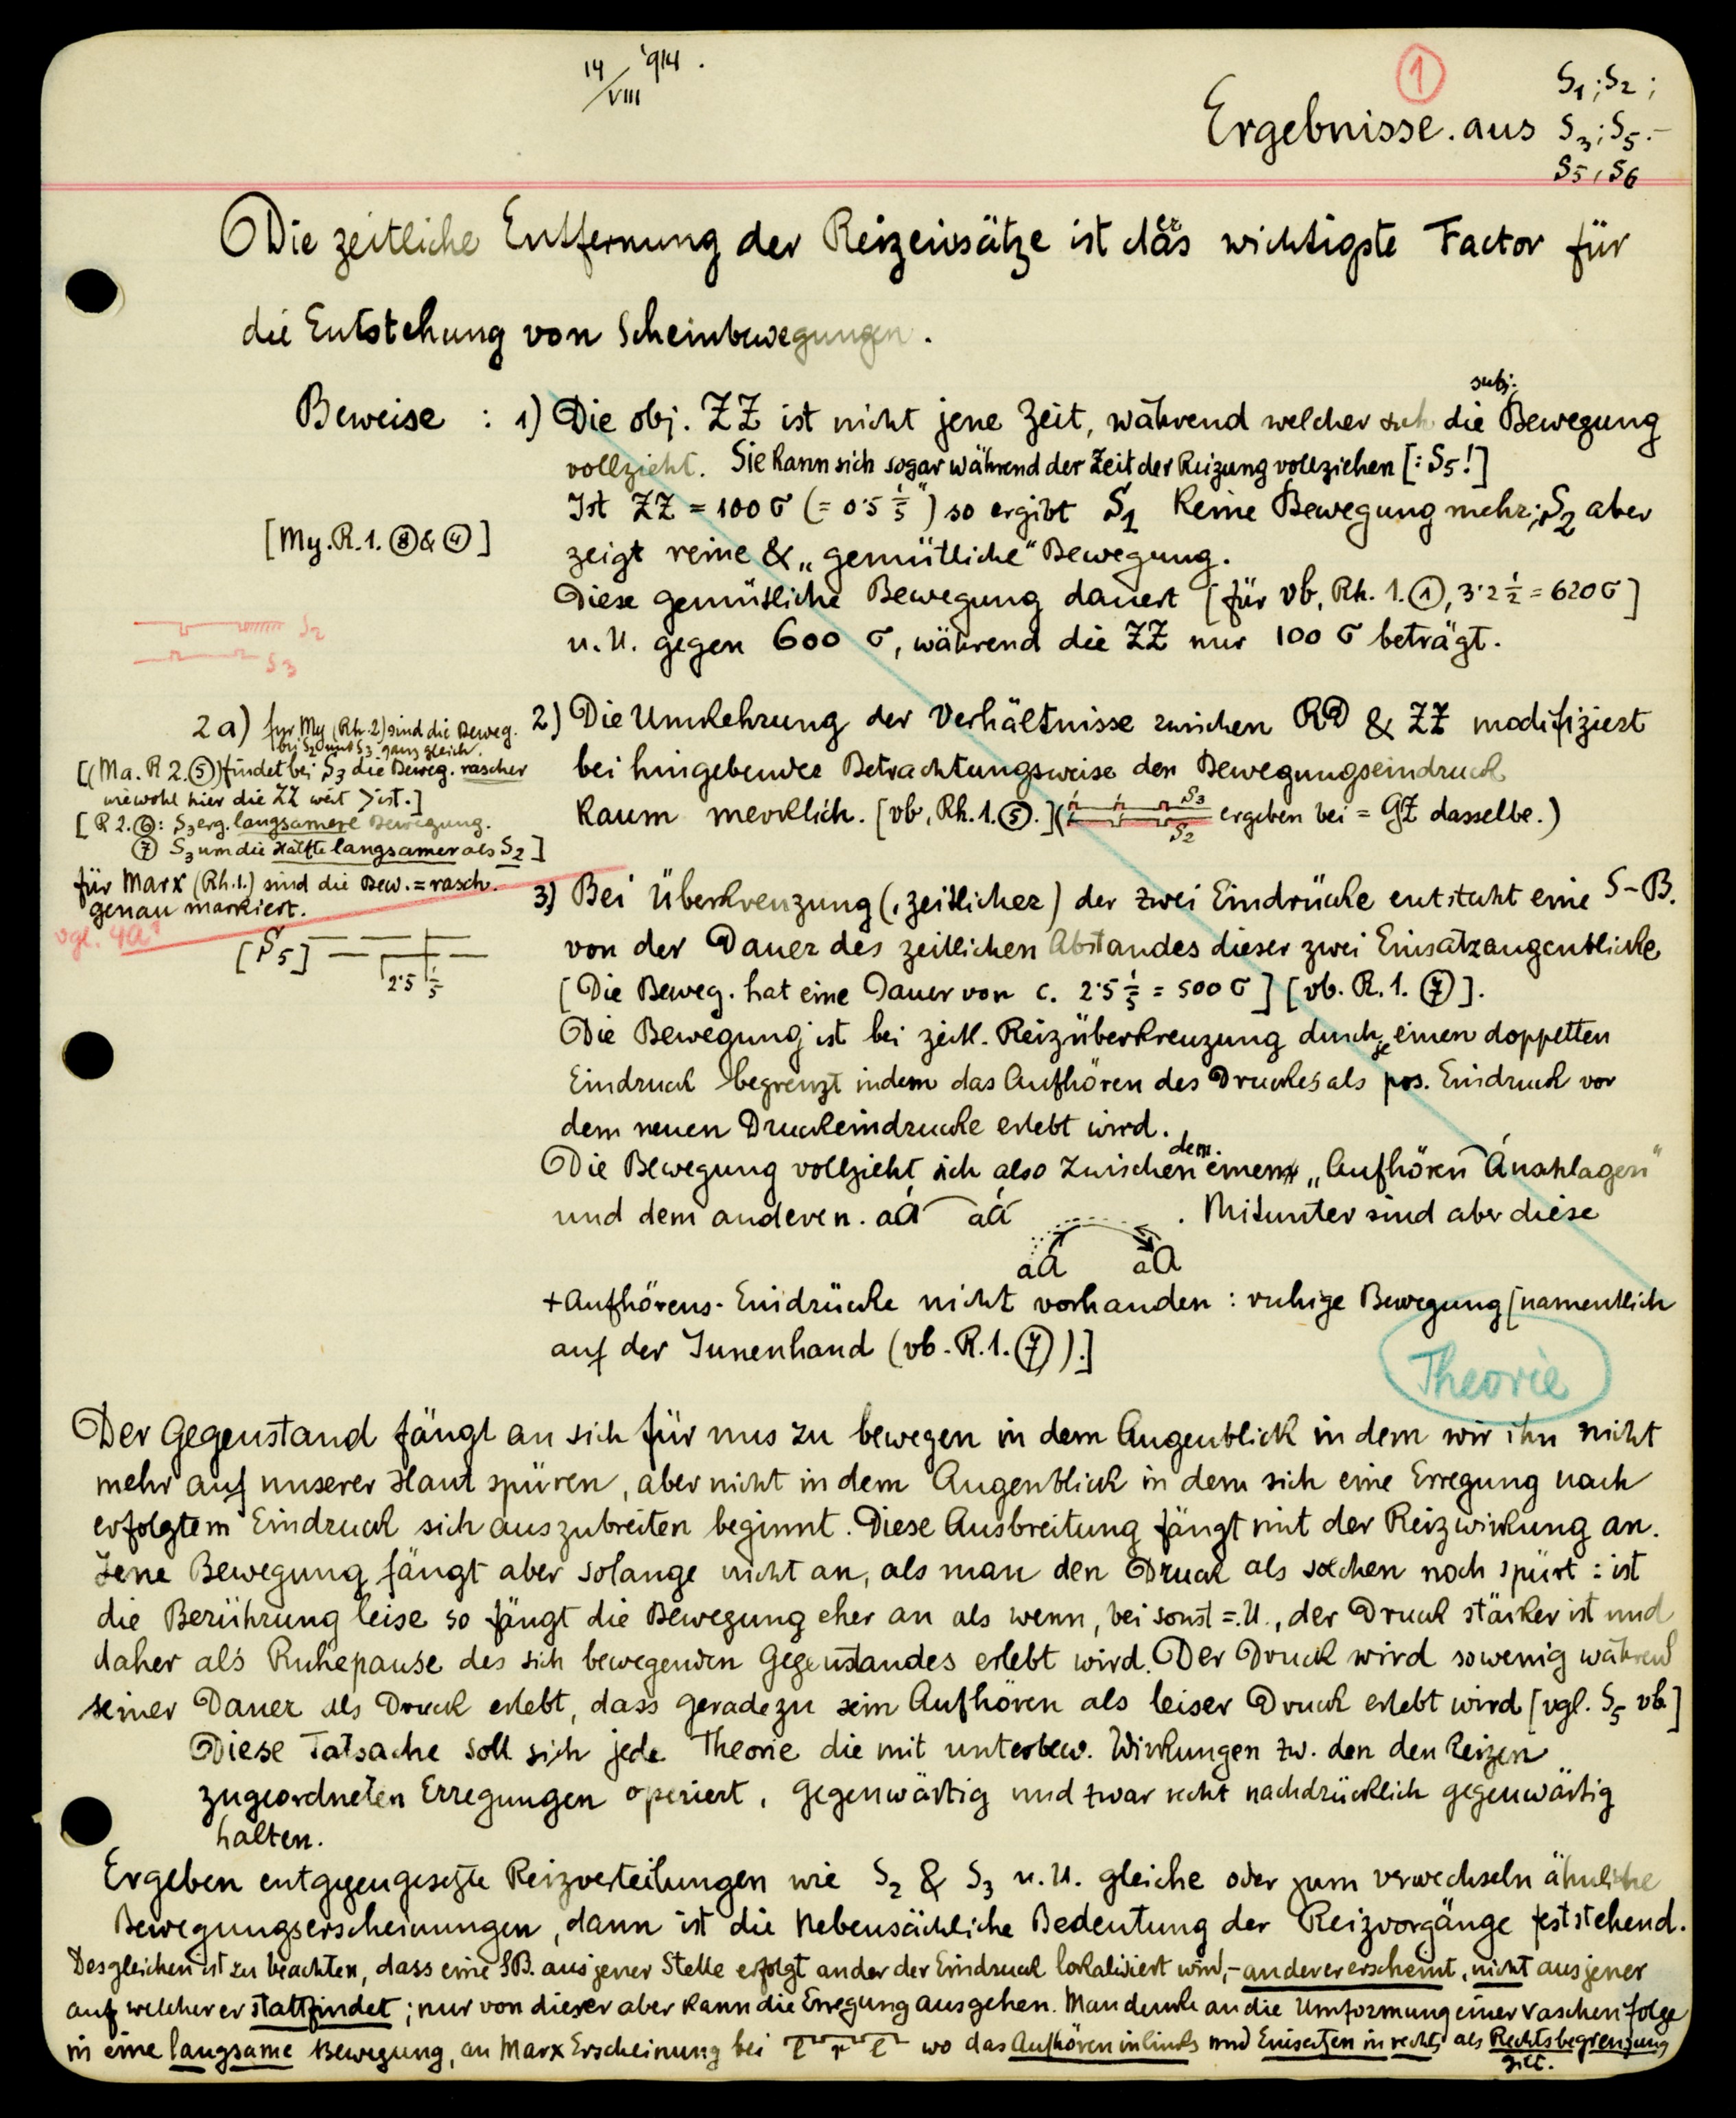 14/VIII '914.
①
Ergebnisse. aus S1; S2;
S3; S5.–
S5, S6
Die zeitliche Entfernung der Reizeinsätze ist der wichtigste Factor für
die Entstehung von Scheinbewegungen.
Beweise : 1) Die obj. ZZ ist nicht jene Zeit, während welcher sich die subj. Bewegung
vollzieht. Sie kann sich sogar während der Zeit der Reizung vollziehen [: S5!]
Ist ZZ = 100 σ (= 0·5 1/5") so ergibt S1 keine Bewegung mehr; S2 aber
[My. R. 1. ③ & ④]
zeigt reine & „gemütliche" Bewegung.
Diese gemütliche Bewegung dauert [für vb, Rh. 1. ①, 3·2 1/2 = 620 σ]
u. U. gegen 600 σ, während die ZZ nur 100 σ beträgt.
S2
S3
2) Die Umkehrung der Verhältnisse zwischen RD & ZZ modifiziert
bei hingebender Betrachtungsweise den Bewegungseindruck
kaum merklich. [vb, Rh. 1. ⑤.] ( S3 S2 ergeben bei = GZ dasselbe.)
2a) für My (Rh. 2) sind die Beweg.
bei S2 und S3 ganz gleich.
[(Ma. R 2. ⑤) findet bei S3 die Beweg. rascher
wiewohl hier die ZZ weit > ist.]
[R 2. ⑥: S3 erg. langsamere Bewegung.
⑦ S3 um die Hälfte langsamer als S2]
für Marx (Rh. 1.) sind die Bew. = rasch.
genau markiert.
vgl. 4a
[S5] 2·5 1/5
3) Bei Überkreuzung (, zeitlicher) der zwei Eindrücke entsteht eine S–B.
von der Dauer des zeitlichen Abstandes dieser zwei Einsatzaugenblicke
[Die Beweg. hat eine Dauer von c. 2·5 1/5 = 500 σ] [vb. R. 1. ⑦].
Die Bewegung ist bei zeitl. Reizüberkreuzung durch je einen doppelten
Eindruck begrenzt indem das Aufhören des Druckes als pos. Eindruck vor
dem neuen Druckeindrucke erlebt wird.
Die Bewegung vollzieht sich also zwischen dem einen „Aufhören Anschlagen"
und dem anderen. aA aA . Mitunter sind aber diese
aA aA
+ Aufhörens-Eindrücke nicht vorhanden : ruhige Bewegung [namentlich
auf der Innenhand (vb. R. 1. ⑦).]
Theorie
Der Gegenstand fängt an sich für uns zu bewegen in dem Augenblick in dem wir ihn nicht
mehr auf unserer Haut spüren, aber nicht in dem Augenblick in dem sich eine Erregung nach
erfolgtem Eindruck sich auszubreiten beginnt. Diese Ausbreitung fängt mit der Reizwirkung an.
Jene Bewegung fängt aber solange nicht an, als man den Druck als solchen noch spürt : ist
die Berührung leise so fängt die Bewegung eher an als wenn, bei sonst =. U., der Druck stärker ist und
daher als Ruhepause des sich bewegenden Gegenstandes erlebt wird. Der Druck wird sowenig während
seiner Dauer als Druck erlebt, dass geradezu sein Aufhören als leiser Druck erlebt wird [vgl. S5 vb]
Diese Tatsache soll sich jede Theorie die mit unterbew. Wirkungen zw. den den Reizen
zugeordneten Erregungen operiert, gegenwärtig und zwar recht nachdrücklich gegenwärtig
halten.
Ergeben entgegengesetzte Reizverteilungen wie S2 & S3 u. U. gleiche oder zum verwechseln ähnliche
Bewegungserscheinungen, dann ist die nebensächliche Bedeutung der Reizvorgänge feststehend.
Desgleichen ist zu beachten, dass eine SB. aus jener Stelle erfolgt an der der Eindruck lokalisiert wird, – an der er erscheint, nicht aus jener
auf welcher er stattfindet ; nur von dieser aber kann die Erregung ausgehen. Man denke an die Umformung einer raschen folge
in eine langsame Bewegung, an Marx Erscheinung bei l r l wo das Aufhören in links und Einsetzen in rechts als Rechtsbegrenzung
gilt.